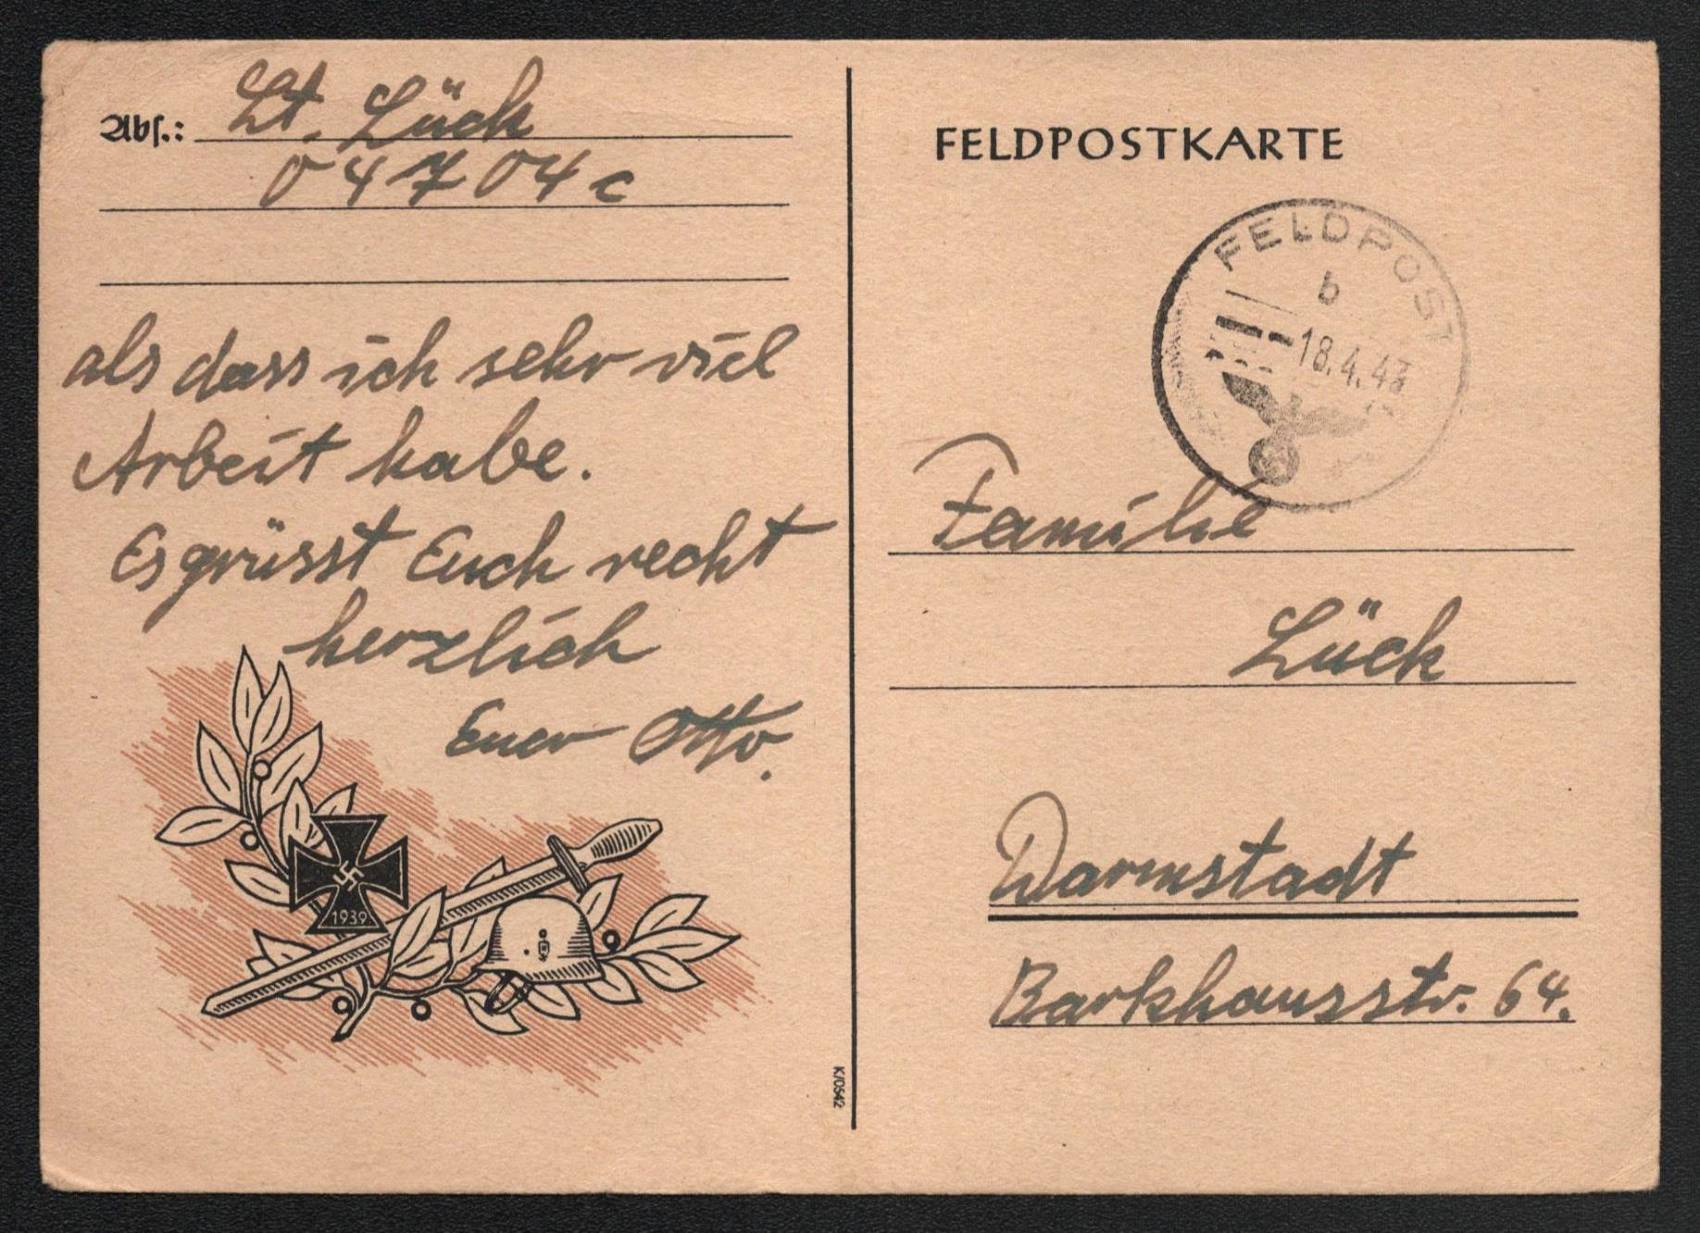 Abs.: Lt. Lück
04704c
als dass ich sehr viel
Arbeit habe.
Es grüsst Euch recht
herzlich
Euer Otto.
1939
K/0542
FELDPOSTKARTE
FELDPOST
b
18.4.43
Familie
Lück
Darmstadt
Barkhausstr. 64.